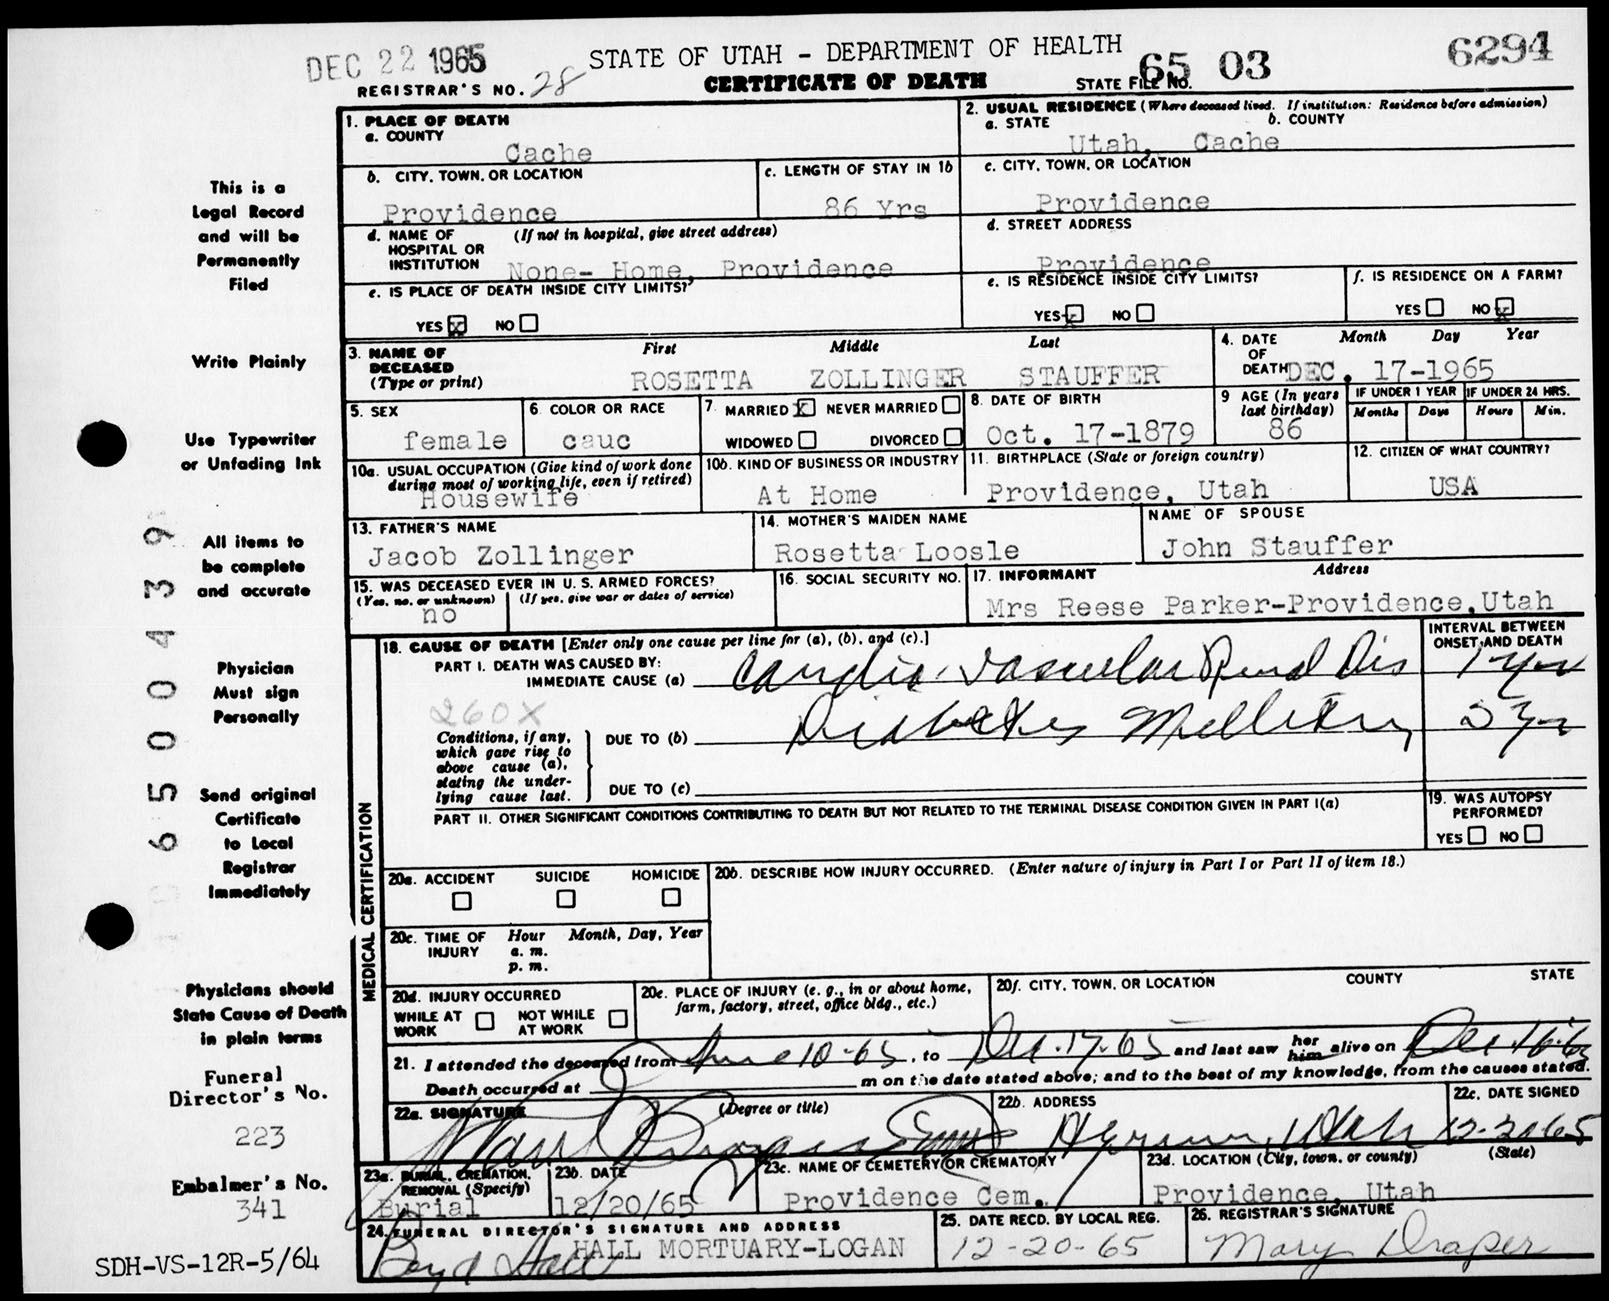 DEC 22 1965
STATE OF UTAH - DEPARTMENT OF HEALTH
65 03
6294
REGISTRAR'S NO. 28
CERTIFICATE OF DEATH
STATE FILE NO.
This is a
Legal Record
and will be
Permanently
Filed
Write Plainly
Use Typewriter
or Unfading Ink
All items to
be complete
and accurate
Physician
Must sign
Personally
Send original
Certificate
to Local
Registrar
Immediately
Physicians should
State Cause of Death
in plain terms
Funeral
Director's No.
223
Embalmer's No.
341
SDH-VS-12R-5/64
6500439
1. PLACE OF DEATH
a. COUNTY
Cache
2. USUAL RESIDENCE (Where deceased lived. If institution: Residence before admission)
a. STATE b. COUNTY
Utah, Cache
b. CITY, TOWN, OR LOCATION
Providence
c. LENGTH OF STAY IN 1b
86 Yrs
c. CITY, TOWN, OR LOCATION
Providence
d. NAME OF (If not in hospital, give street address)
HOSPITAL OR
INSTITUTION None- Home, Providence
d. STREET ADDRESS
Providence
e. IS PLACE OF DEATH INSIDE CITY LIMITS?
YES x NO
e. IS RESIDENCE INSIDE CITY LIMITS?
YES x NO
f. IS RESIDENCE ON A FARM?
YES NO x
3. NAME OF DECEASED (Type or print)
First Middle Last
ROSETTA ZOLLINGER STAUFFER
4. DATE OF DEATH Month Day Year
DEC. 17-1965
5. SEX
female
6. COLOR OR RACE
cauc
7. MARRIED x NEVER MARRIED
WIDOWED DIVORCED
8. DATE OF BIRTH
Oct. 17-1879
9 AGE (In years last birthday)
86
IF UNDER 1 YEAR IF UNDER 24 HRS.
Months Days Hours Min.
10a. USUAL OCCUPATION (Give kind of work done
during most of working life, even if retired)
Housewife
10b. KIND OF BUSINESS OR INDUSTRY
At Home
11. BIRTHPLACE (State or foreign country)
Providence, Utah
12. CITIZEN OF WHAT COUNTRY?
USA
13. FATHER'S NAME
Jacob Zollinger
14. MOTHER'S MAIDEN NAME
Rosetta Loosle
NAME OF SPOUSE
John Stauffer
15. WAS DECEASED EVER IN U. S. ARMED FORCES?
(Yes, no, or unknown) (If yes, give war or dates of service)
no
16. SOCIAL SECURITY NO.
17. INFORMANT Address
Mrs Reese Parker-Providence, Utah
MEDICAL CERTIFICATION
18. CAUSE OF DEATH [Enter only one cause per line for (a), (b), and (c).]
INTERVAL BETWEEN
ONSET AND DEATH
PART I. DEATH WAS CAUSED BY:
IMMEDIATE CAUSE (a) Cardio-Vascular Renal Dis 1 yr
260X
Conditions, if any,
which gave rise to
above cause (a),
stating the under-
lying cause last.
DUE TO (b) Diabetes Mellitus
DUE TO (c)
PART II. OTHER SIGNIFICANT CONDITIONS CONTRIBUTING TO DEATH BUT NOT RELATED TO THE TERMINAL DISEASE CONDITION GIVEN IN PART I(a)
19. WAS AUTOPSY
PERFORMED?
YES NO
20a. ACCIDENT SUICIDE HOMICIDE
20b. DESCRIBE HOW INJURY OCCURRED. (Enter nature of injury in Part I or Part II of item 18.)
20c. TIME OF INJURY Hour Month, Day, Year
a. m.
p. m.
20d. INJURY OCCURRED
WHILE AT WORK NOT WHILE AT WORK
20e. PLACE OF INJURY (e. g., in or about home,
farm, factory, street, office bldg., etc.)
20f. CITY, TOWN, OR LOCATION COUNTY STATE
21. I attended the deceased from June 10-65, to Dec. 17-65 and last saw her him alive on Dec 16-65
Death occurred at m on the date stated above; and to the best of my knowledge, from the causes stated.
22a. SIGNATURE (Degree or title)
22b. ADDRESS
Hyrum, Utah
22c. DATE SIGNED
23a. BURIAL, CREMATION,
REMOVAL (Specify)
Burial
23b. DATE
12/20/65
23c. NAME OF CEMETERY OR CREMATORY
Providence Cem.
23d. LOCATION (City, town, or county) (State)
Providence, Utah
24. FUNERAL DIRECTOR'S SIGNATURE AND ADDRESS
Boyd Hall HALL MORTUARY-LOGAN
25. DATE RECD. BY LOCAL REG.
12-20-65
26. REGISTRAR'S SIGNATURE
Mary Draper